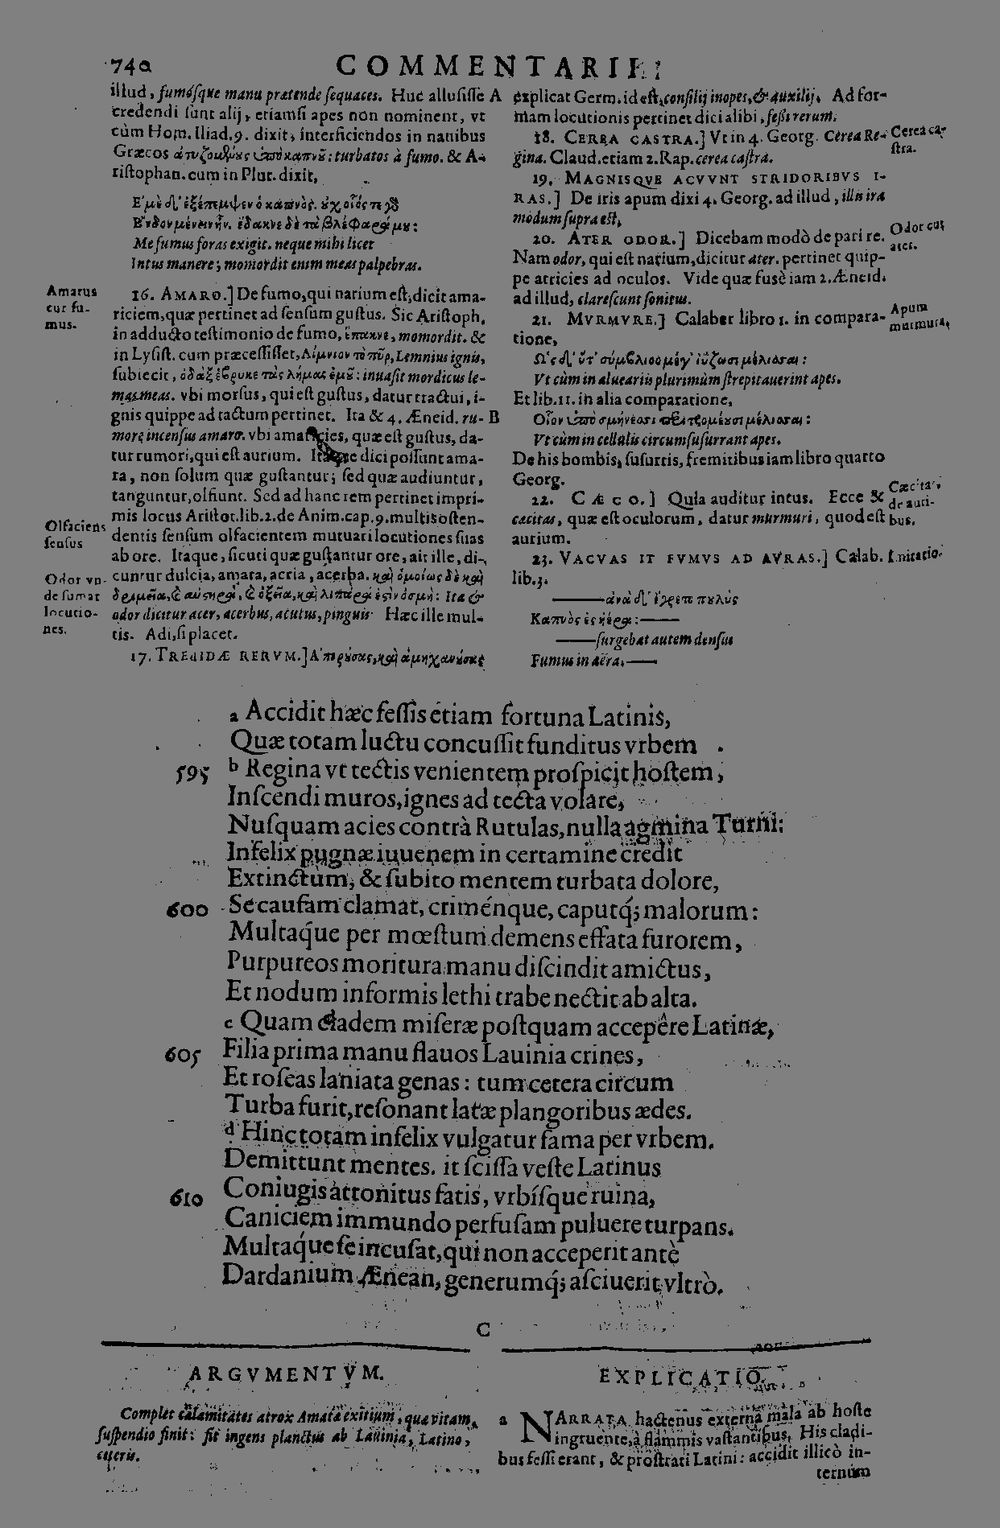 740
COMMENTARII
illud, fumósque manu prætende sequaces. Huc allusisse A
credendi sunt alij, etiamsi apes non nominent, vt
cùm Hom. Iliad. 9. dixit, interficiendos in nauibus
Græcos : turbatos à fumo. & A-
ristophan. cum in Plut. dixit,
Me fumus foras exigit. neque mihi licet
Intus manere; momordit enim meas palpebras.
Amarus
cur fu-
mus.
16. AMARO.] De fumo, qui narium est, dicit ama-
riciem, quæ pertinet ad sensum gustus. Sic Aristoph.
in adducto testimonio de fumo, momordit. &
in Lysist. cum præcessisset, Λίμνιον τὸ πῦρ, Lemnius ignis,
subiecit, : inuasit mordicus le-
mas meas. vbi morsus, qui est gustus, datur tractui, i-
gnis quippe ad tactum pertinet. Ita & 4. Æneid. ru- B
more incensus amaro. vbi amaricies, quæ est gustus, da-
tur rumori, qui est aurium. Itaque dici possunt ama-
ra, non solum quæ gustantur; sed quæ audiuntur,
tanguntur, olfiunt. Sed ad hanc rem pertinet impri-
mis locus Aristot. lib. 2. de Anim. cap. 9. multis osten-
dentis sensum olfacientem mutuari locutiones suas
ab ore. Itaque, sicuti quæ gustantur ore, ait ille, di-
cuntur dulcia, amara, acria, acerba. καὶ ὁμοίως δὲ καὶ
Ita &
odor dicitur acer, acerbus, acutus, pinguis Hæc ille mul-
tis. Adi, si placet.
Olfaciens
sensus
Odor vn-
de sumat
locutio-
nes.
17. TREPIDÆ RERVM.]
explicat Germ. id est, consilij inopes, & auxilij. Ad for-
mam locutionis pertinet dici alibi, fessi rerum.
18. CEREA CASTRA.] Vt in 4. Georg. Cerea Re-
gina. Claud. etiam 2. Rap. cerea castra.
Cerea ca-
stra.
19. MAGNISQVE ACVVNT STRIDORIBVS I-
RAS.] De iris apum dixi 4. Georg. ad illud, illis ira
modum supra est,
20. ATER ODOR.] Dicebam modò de pari re.
Nam odor, qui est narium, dicitur ater. pertinet quip-
pe atricies ad oculos. Vide quæ fusè iam 2. Æneid.
ad illud, clarescunt sonitus.
Odor cur
ater.
21. MVRMVRE.] Calaber libro 1. in compara-
tione,
Apum
murmura,
Vt cùm in aluearijs plurimùm strepitauerint apes.
Et lib. 11. in alia comparatione,
Vt cùm in cellulis circumsusurrant apes.
De his bombis, susurris, fremitibus iam libro quarto
Georg.
22. CÆCO.] Quia auditur intus. Ecce &
cæcitas, quæ est oculorum, datur murmuri, quod est
aurium.
Cæcitas
de auri-
bus.
23. VACVAS IT FVMVS AD AVRAS.] Calab.
lib. 3.
Imitatio.
Καπνὸς ἐς ἠέρα: ——
——surgebat autem densus
Fumus in aëra.——
a Accidit hæc fessis etiam fortuna Latinis,
Quæ totam luctu concussit funditus vrbem .
595 b Regina vt tectis venientem prospicit hostem,
Inscendi muros, ignes ad tecta volare,
Nusquam acies contrà Rutulas, nulla agmina Turni:
Infelix pugnæ iuuenem in certamine credit
Extinctum, & subito mentem turbata dolore,
600 Se causam clamat, criménque, caputq; malorum:
Multaq́ue per mœstum demens effata furorem,
Purpureos moritura manu discindit amictus,
Et nodum informis lethi trabe nectit ab alta.
c Quam cladem miseræ postquam accepêre Latinæ,
605 Filia prima manu flauos Lauinia crines,
Et roseas laniata genas: tum cetera circum
Turba furit, resonant latæ plangoribus ædes.
d Hinc totam infelix vulgatur fama per vrbem.
Demittunt mentes. it scissa veste Latinus
610 Coniugis attonitus fatis, vrbísque ruina,
Caniciem immundo perfusam puluere turpans.
Multaq́ue se incusat, qui non acceperit antè
Dardanium Ænean, generumq́; asciuerit vltrò.
C
ARGVMENTVM.
Complet calamitates atrox Amatæ exitium, quæ vitam
suspendio finit: fit ingens planctus ab Lauinia, Latino,
ceteris.
EXPLICATIO.
a NARRATA hactenus externa mala ab hoste
ingruente, à flammis vastantibus. His cladi-
bus fessi erant, & prostrati Latini: accidit illicò in-
ternum